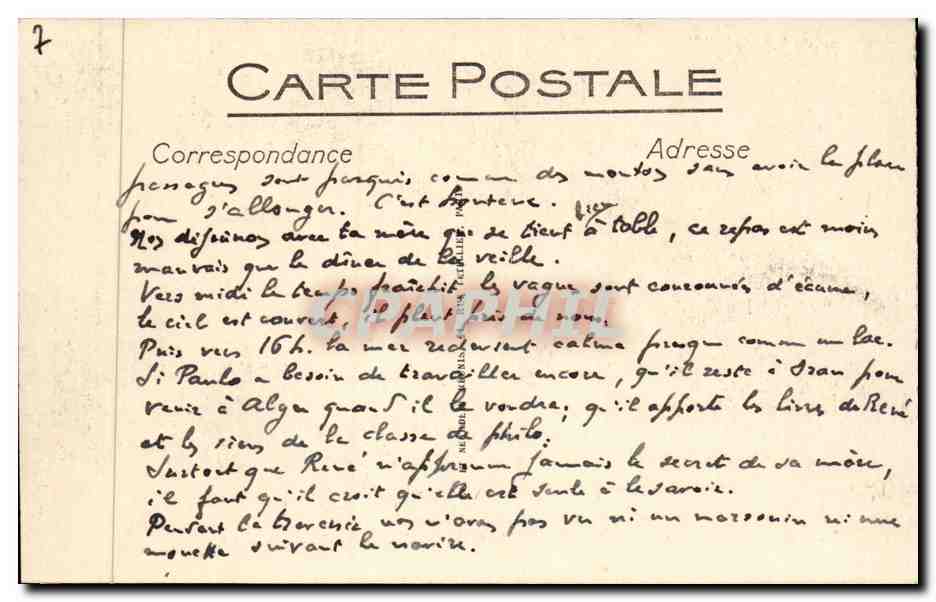 7
CARTE POSTALE
Correspondance
Adresse
passagers sont parqués comme des moutons sans avoir la place
pour s'allonger. C'est honteux.
Nos déjeunons avec ta mère que se tient à table, ce repas est moins
bien
mauvais que le dîner de la veille.
Vers midi le temps fraîchit, les vagues sont couronnées d'écume,
le ciel est couvert, il pleut puis à nous.
Puis vers 16h. la mer redevient calme presque comme un lac.
Si Paulo a besoin de travailler encore, qu'il reste à Oran pour
venir à Alger quand il le voudra; qu'il apporte les livres de René
et les siens de la classe de philo.
Surtout que René n'apprenne jamais le secret de sa mère,
il faut qu'il croit qu'elle est seule à le savoir.
Pendant la traversée nos n'avons pas vu ni un marsouin ni une
mouette suivant le navire.
CPAPHIL